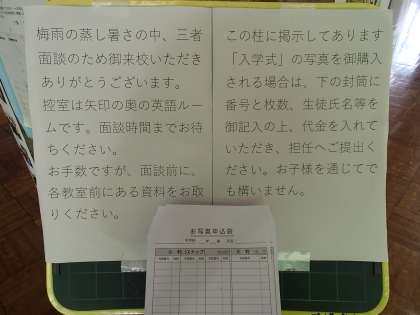 梅雨の蒸し暑さの中、三者
面談のため御来校いただき
ありがとうございます。
控室は矢印の奥の英語ルー
ムです。面談時間までお待
ちください。
お手数ですが、面談前に、
各教室前にある資料をお取
りください。
この柱に掲示してあります
「入学式」の写真を御購入
される場合は、下の封筒に
番号と枚数、生徒氏名等を
御記入の上、代金を入れて
いただき、担任へご提出く
ださい。お子様を通じてで
も構いません。
お写真申込袋